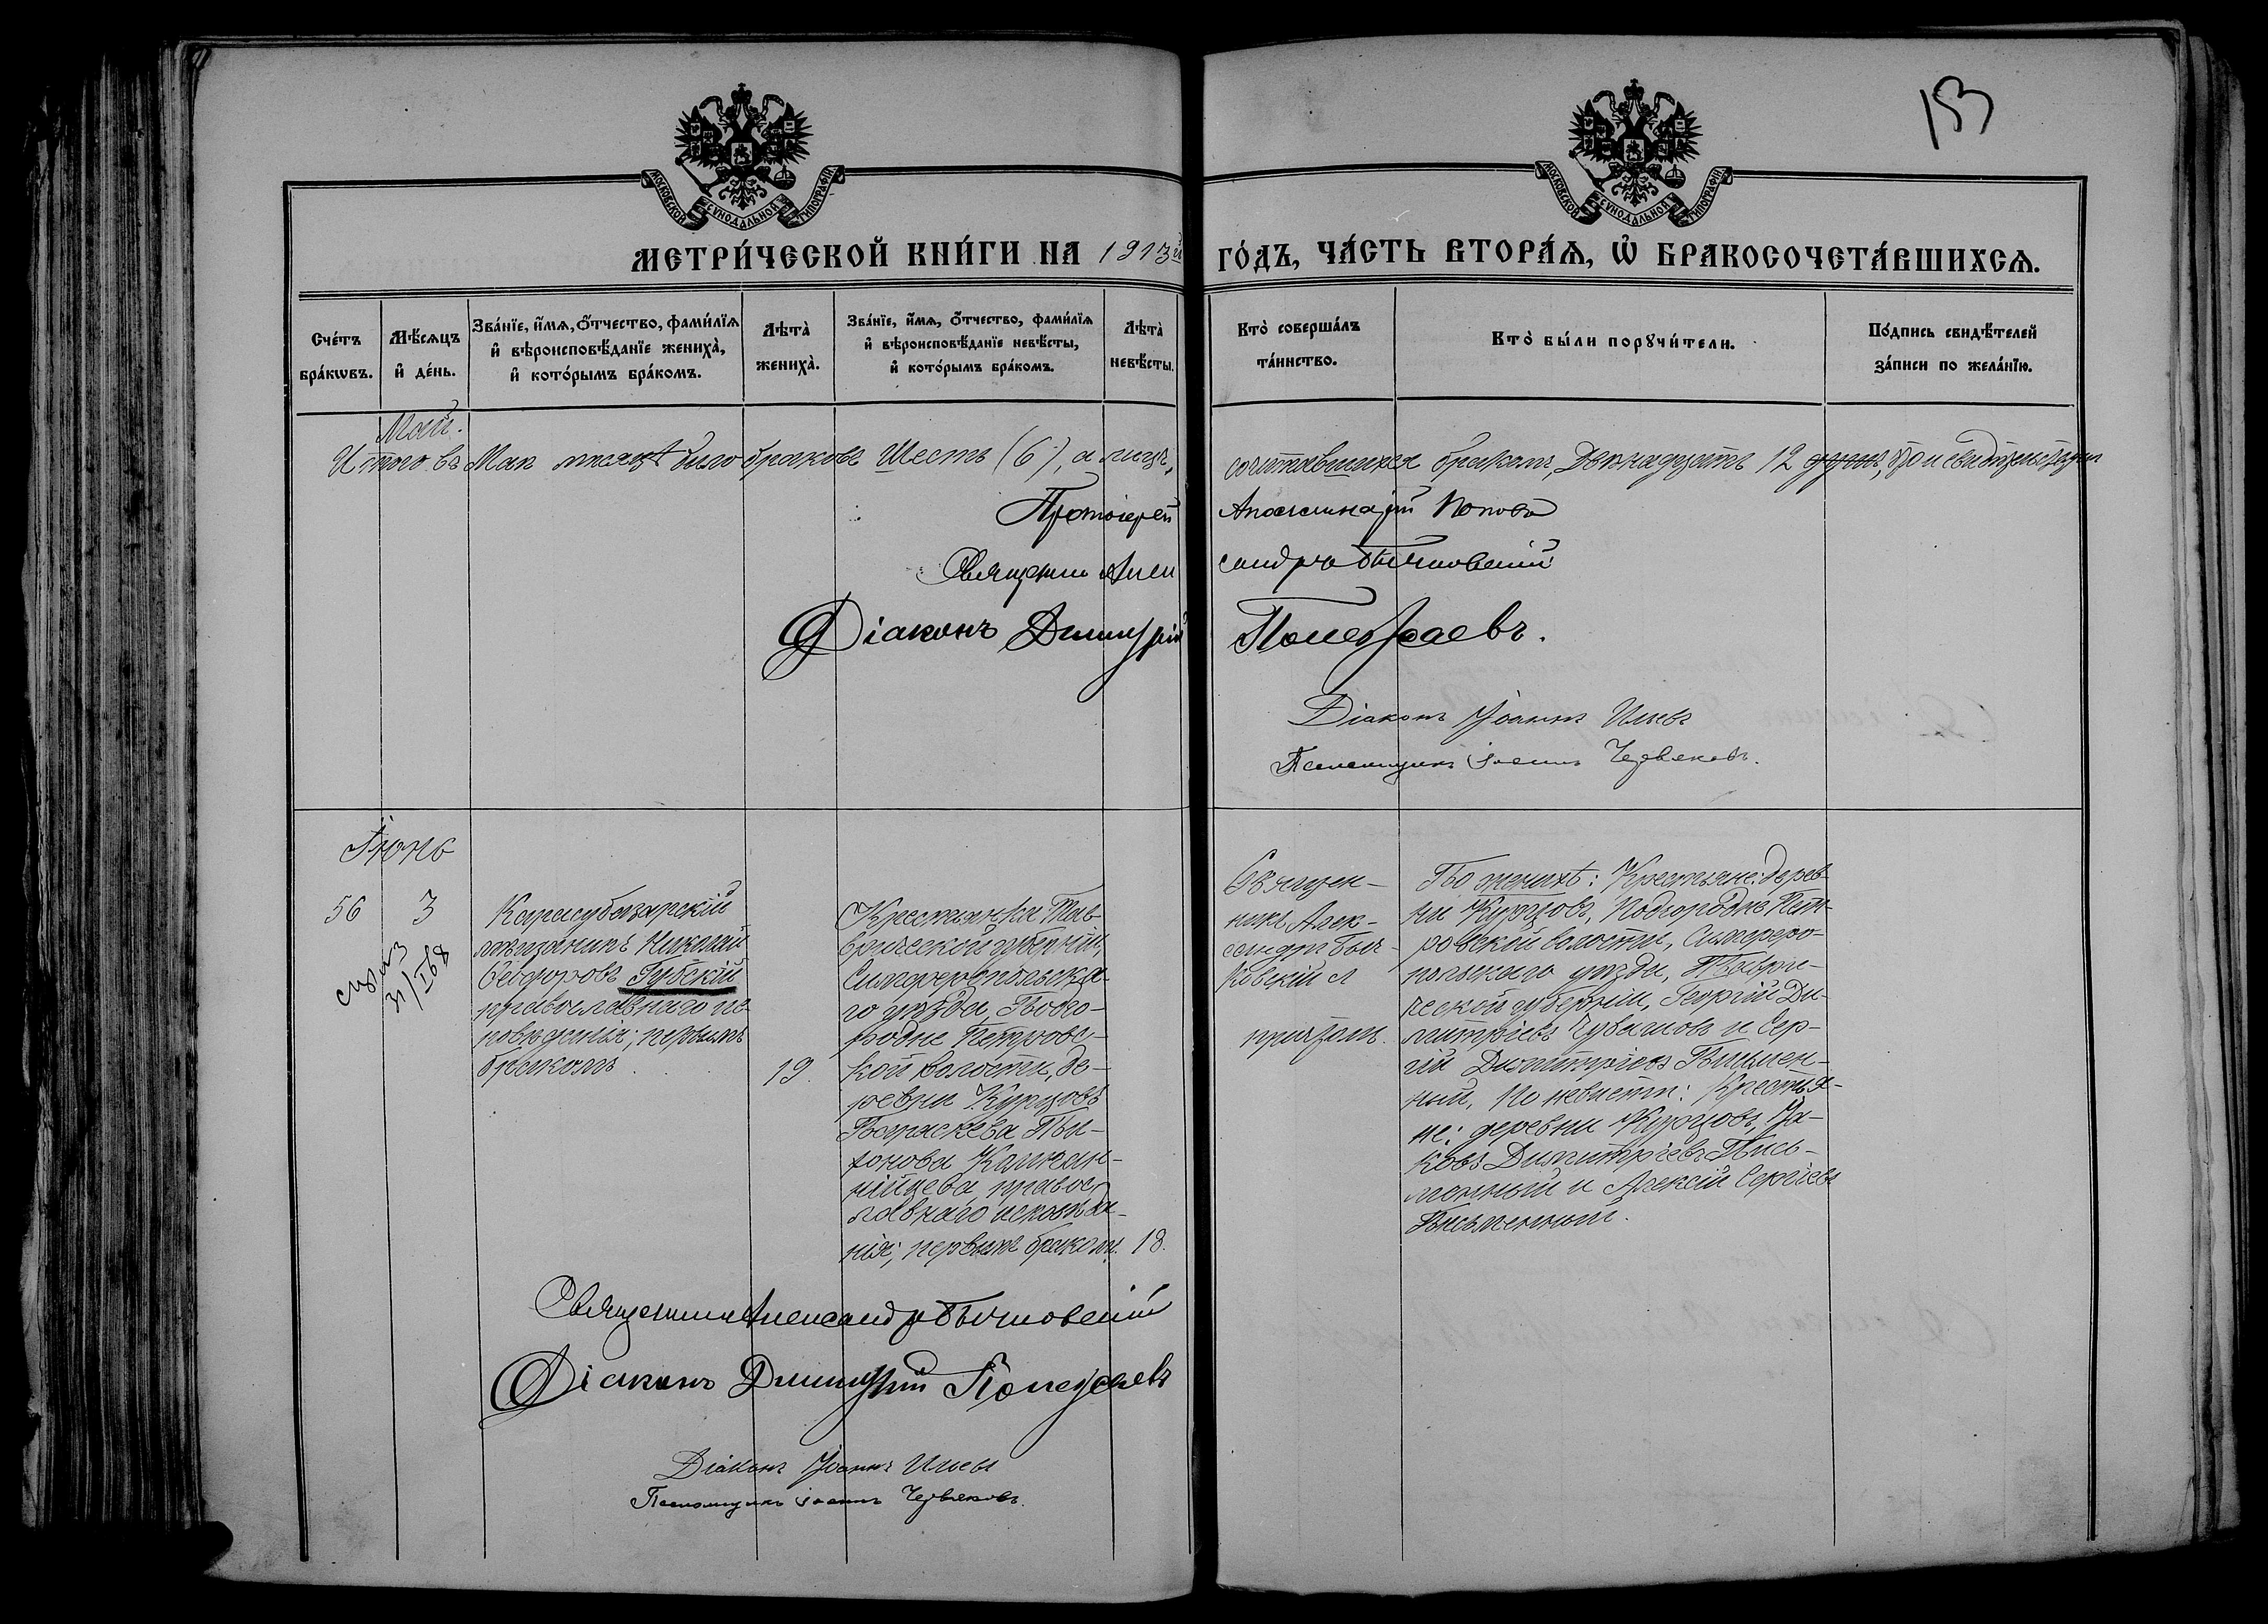 153
МОСКОВСКОЙ СѴНОДАЛЬНОЙ ТИПОГРАФІИ
МОСКОВСКОЙ СѴНОДАЛЬНОЙ ТИПОГРАФІИ
МЕТРИ́ЧЕСКОЙ КНИ́ГИ НА 1913 го ГО́ДЪ, ЧА́СТЬ ВТОРА́Ѧ, Ѽ БРАКОСОЧЕТА́ВШИХСѦ.
Сче́тъ бра́кωвъ.
Мѣ́сѧцъ и҆ де́нь.
Зва́нїе, и҆́мѧ, ѻ҆́тчество, фами́лїѧ и҆ вѣроисповѣ́данїе жениха̀, и҆ кото́рымъ бра́комъ.
Лѣта̀ жениха̀.
Зва́нїе, и҆́мѧ, ѻ҆́тчество, фами́лїѧ и҆ вѣроисповѣ́данїе невѣ́сты, и҆ кото́рымъ бра́комъ.
Лѣта̀ невѣ́сты.
Кто̀ соверша́лъ та́инство.
Кто̀ бы́ли порꙋчи́тели.
По́дпись свидѣ́телей за́писи по жела́нїю.
Май.
Итого въ Маѣ месяцѣ было браковъ Шесть (6), а лицъ, сочитавшихся бракомъ, Двенадцать 12
Протоіерей Аполлинарій Поповъ
Священникъ Александръ Бычковскій
Діаконъ Димитрій Полеvаевъ.
Діаконъ Іоаннъ Ильевъ
Псаломщикъ Іоаннъ Червяковъ.
Іюнь
56
3
Карасубазарскій
мѣщанинъ Николай
Ѳеодоровъ Губскій
православнаго ис-
повѣданія; первымъ
бракомъ
19.
Крестьянка Тав-
рической губерніи,
Симферопольска-
го уѣзда, Подго-
родне Петровс-
кой волости, де-
ревни Курцовъ
Калиан-
нійцева, правос-
лавнаго исповѣда-
нія; первымъ бракомъ.
18.
Священ-
никъ Алек-
сандръ Быч-
ковскій
причтомъ.
По женихѣ: Крестьяне: дерев-
ни Курцовъ, Подгороднѣ Пет-
ровской волости, Симферо-
польскаго уѣзда, Тавричс-
ческой губерніи, Георгій Ди-
митріевъ Чубановъ и Сер-
гій Димитріевъ Письмен-
ный. По невѣсти: Крестья-
не: деревни Курцовъ, Яа-
ковъ Димитріевъ Пись-
менный и Алексій Сергіевъ
Письменный.
Священникъ Александръ Бычковскій
Діаконъ Димитрій
Діаконъ Іоаннъ Ильевъ
Псаломщикъ Іоаннъ Червяковъ.